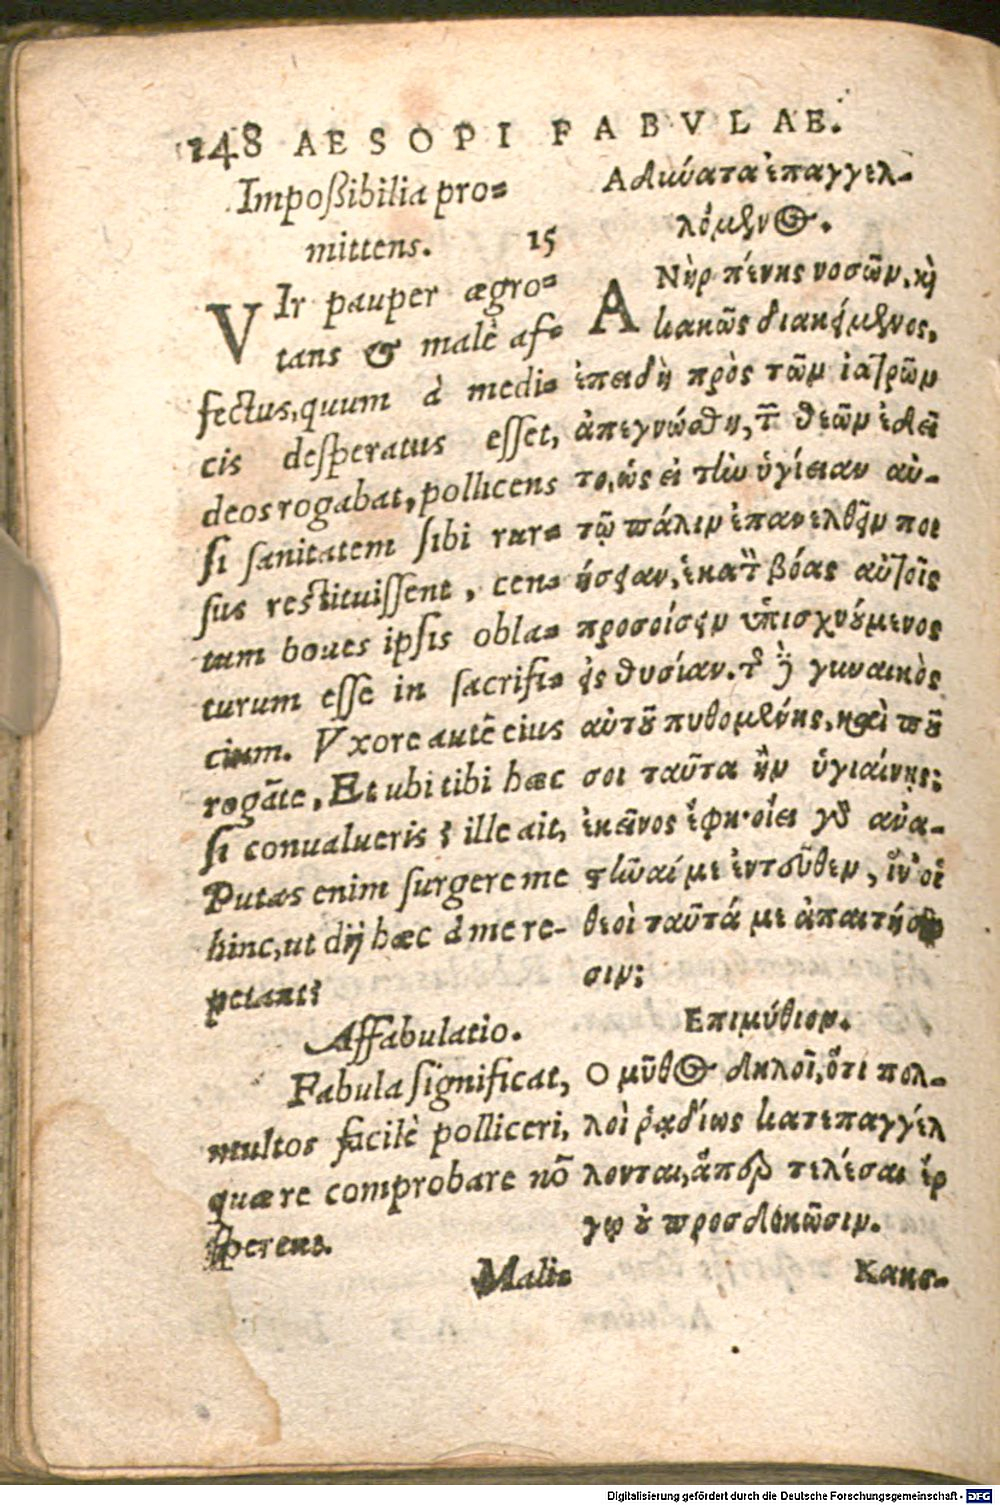 148 AESOPI FABVLAE.
Impoßibilia pro-
mittens. 15
VIr pauper ægro-
tans & malè af-
fectus, quum à medi-
cis desperatus esset,
deos rogabat, pollicens
si sanitatem sibi rur-
sus restituissent, cen-
tum boues ipsis obla-
turum esse in sacrifi-
cium. Vxore autē eius
rogāte, Et ubi tibi hæc
si conualueris? ille ait,
Putas enim surgere me
hinc, ut dij hæc à me re-
petant?
Affabulatio.
Fabula significat,
multos facilè polliceri,
quæ re comprobare nō
sperent.
Mali-
Αδύνατα ἐπαγγελ-
λόμενος.
ΑΝὴρ πένης νοσῶν, κὶ
κακῶς διακείμενος,
ἐπειδὴ πρὸς τῶν ἰατρῶν
ἀπεγνώσθη, τ̄ θεῶν ἐδεῖ
το, ὡς εἰ τὴν ὑγίειαν αὐ-
τῷ πάλιν ἐπανελθεῖν ποι
ήσειαν, ἑκατὸν βόας αὐτοῖς
προσοίσειν ὑπισχνούμενος
εἰς θυσίαν. τ͂ δὲ γυναικὸς
αὐτοῦ πυθομένης, καὶ ποῦ
σοι ταῦτα ἢν ὑγιαίνῃς;
ἐκεῖνος ἔφη· οἴει γὸ ἀνα-
στῆναί με ἐντεῦθεν, ἵν' οἱ
θεοὶ ταῦτά με ἀπαιτήσω
σιν;
Επιμύθιον.
Ο μῦθος δηλοῖ, ὅτι πολ-
λοὶ ῥᾳδίως κατεπαγγέλ
λονται, ἅπερ τελέσαι ἔρ
γῳ οὐ προσδοκῶσιν.
Κακο-
Digitalisierung gefördert durch die Deutsche Forschungsgemeinschaft - DFG